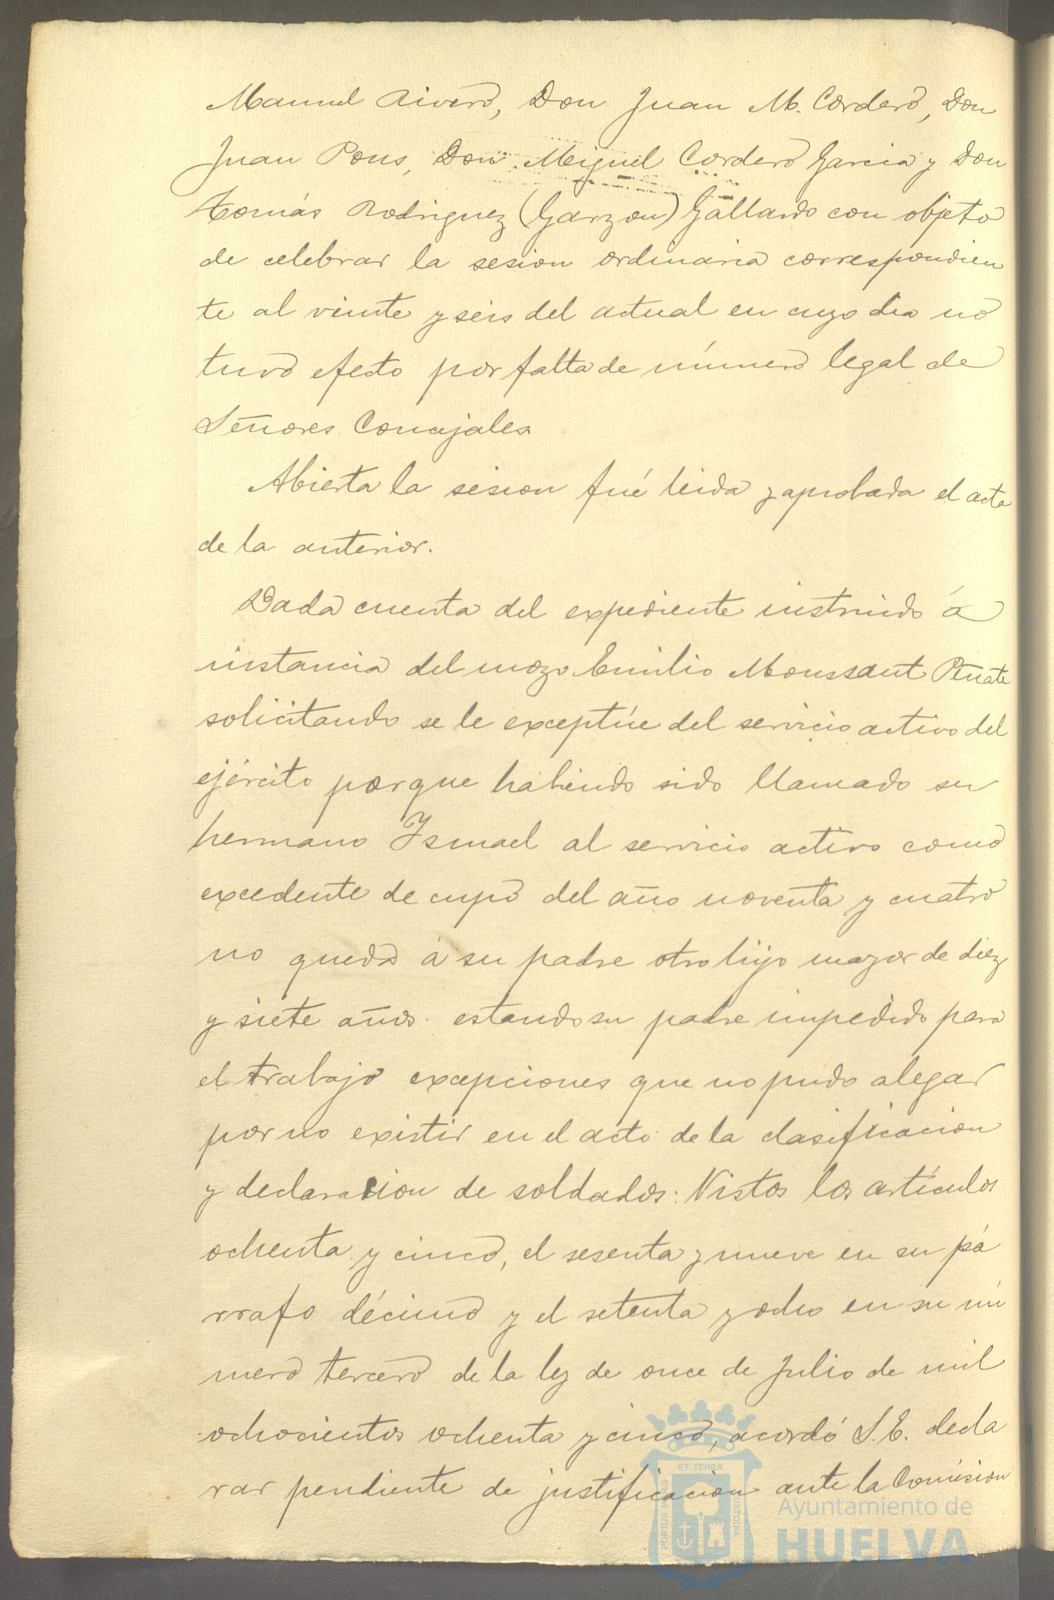 Manuel Rivero, Don Juan M. Cordero, Don
Juan Pons, Don Miguel Cordero Garcia y Don
Tomás Rodriguez (Garzon) Gallardo con objeto
de celebrar la sesion ordinaria correspondien
te al veinte y seis del actual en cuyo dia no
tuvo efecto por falta de número legal de
Señores Concejales
Abierta la sesion fué leida y aprobada el acta
de la anterior.
Dada cuenta del expediente instruido á
instancia del mozo Emilio Moussaut Peñate
solicitando se le exceptúe del servicio activo del
ejército porque habiendo sido llamado su
hermano Ismael al servicio activo como
excedente de cupo del año noventa y cuatro
no queda á su padre otro hijo mayor de diez
y siete años estando su padre impedido para
el trabajo excepciones que no pudo alegar
por no existir en el acto de la clasificacion
y declaracion de soldados: Vistos los artículos
ochenta y cinco, el sesenta y nueve en su pá
rrafo décimo y el setenta y ocho en su nú
mero tercero de la ley de once de Julio de mil
ochocientos ochenta y cinco, acordó S.E. decla
rar pendiente de justificacion ante la Comision
ET TERRÆ
PORTUS MARIS
CUSTODIA
Ayuntamiento de
HUELVA